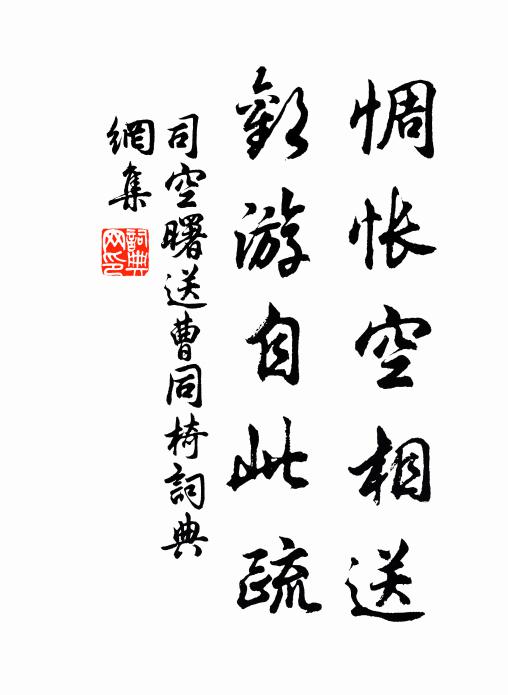 惆怅空相送
歡游自此疏
司空曙送曹同椅詞典
網集
詞典
网印